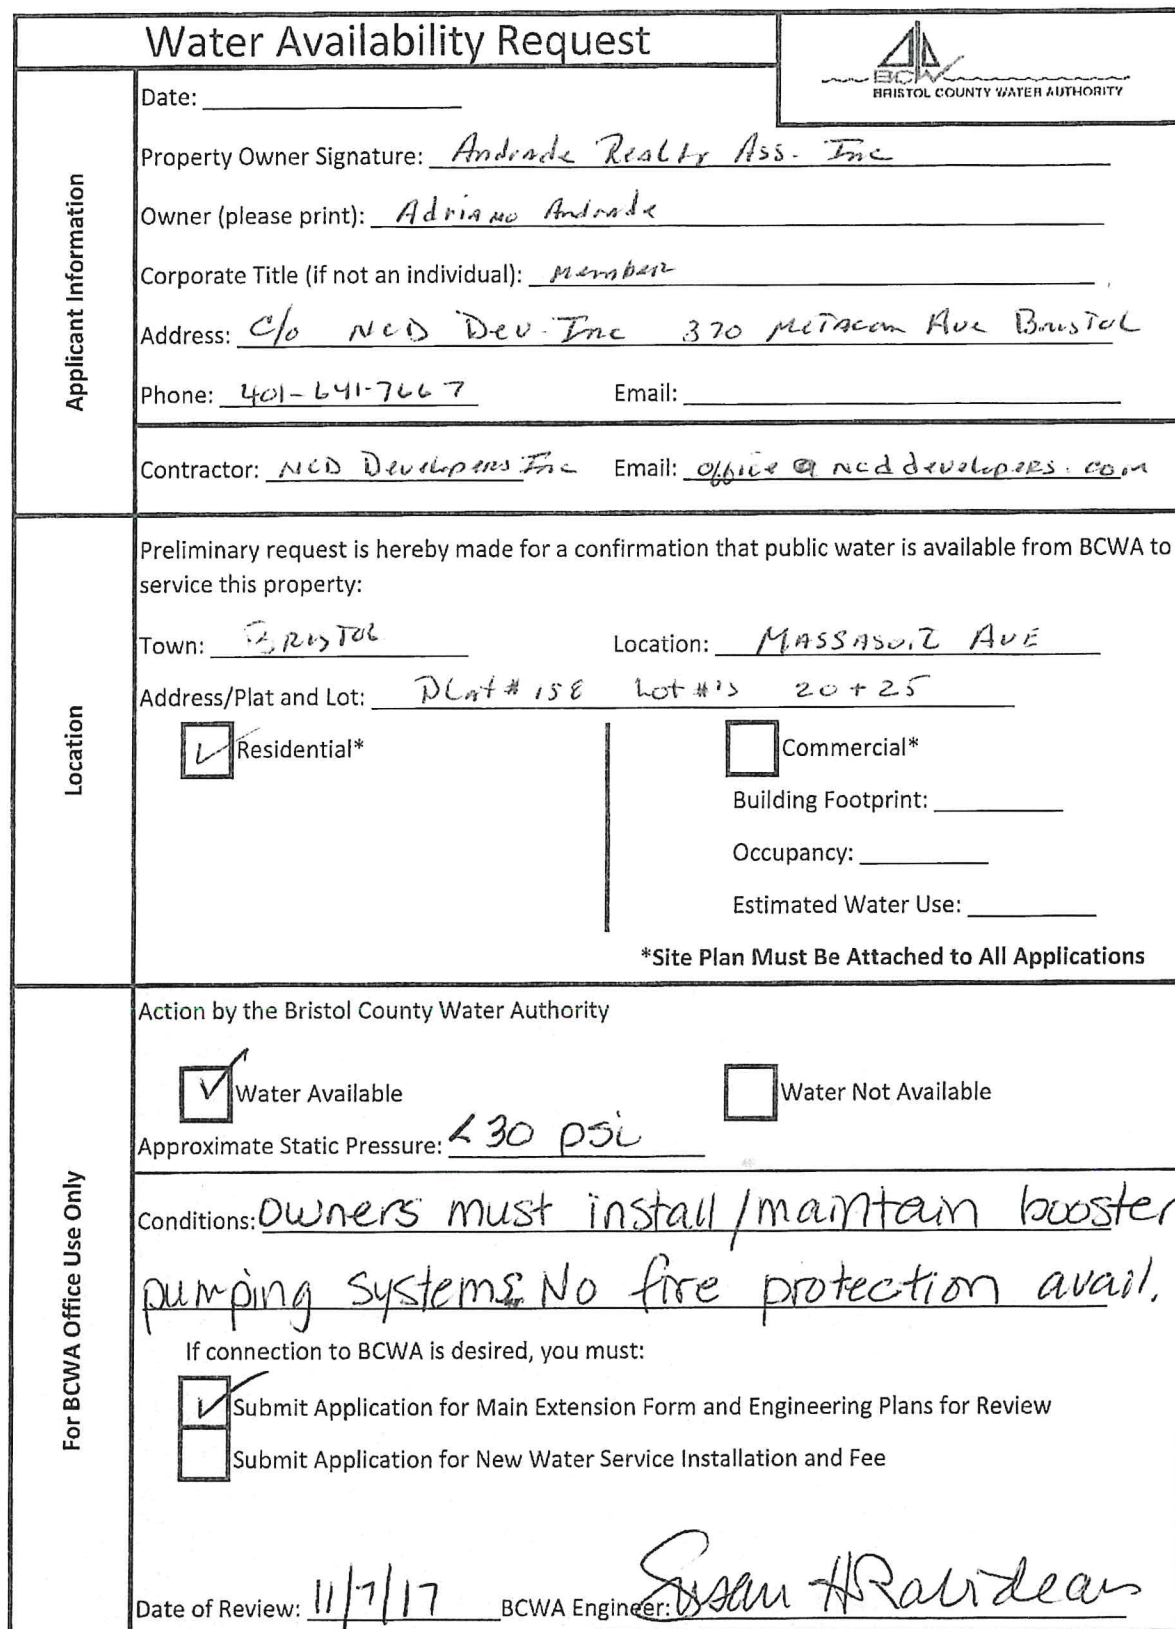 Water Availability Request
BCWA
BRISTOL COUNTY WATER AUTHORITY
Applicant Information
Date:
Property Owner Signature: Andrade Realty Ass. Inc
Owner (please print): Adriano Andrade
Corporate Title (if not an individual): Member
Address: C/o NCD Dev. Inc 370 Metacom Ave Bristol
Phone: 401-641-7667 Email:
Contractor: NCD Developers Inc Email: office@ncddevelopers.com
Location
Preliminary request is hereby made for a confirmation that public water is available from BCWA to
service this property:
Town: Bristol Location: MASSASOIT AVE
Address/Plat and Lot: Plat # 158 Lot #'s 20 + 25
Residential* Commercial*
Building Footprint:
Occupancy:
Estimated Water Use:
*Site Plan Must Be Attached to All Applications
For BCWA Office Use Only
Action by the Bristol County Water Authority
Water Available Water Not Available
Approximate Static Pressure: <30 psi
Conditions: Owners must install/maintain booster
pumping systems. No fire protection avail.
If connection to BCWA is desired, you must:
Submit Application for Main Extension Form and Engineering Plans for Review
Submit Application for New Water Service Installation and Fee
Date of Review: 11/7/17 BCWA Engineer: Susan H Rabideau